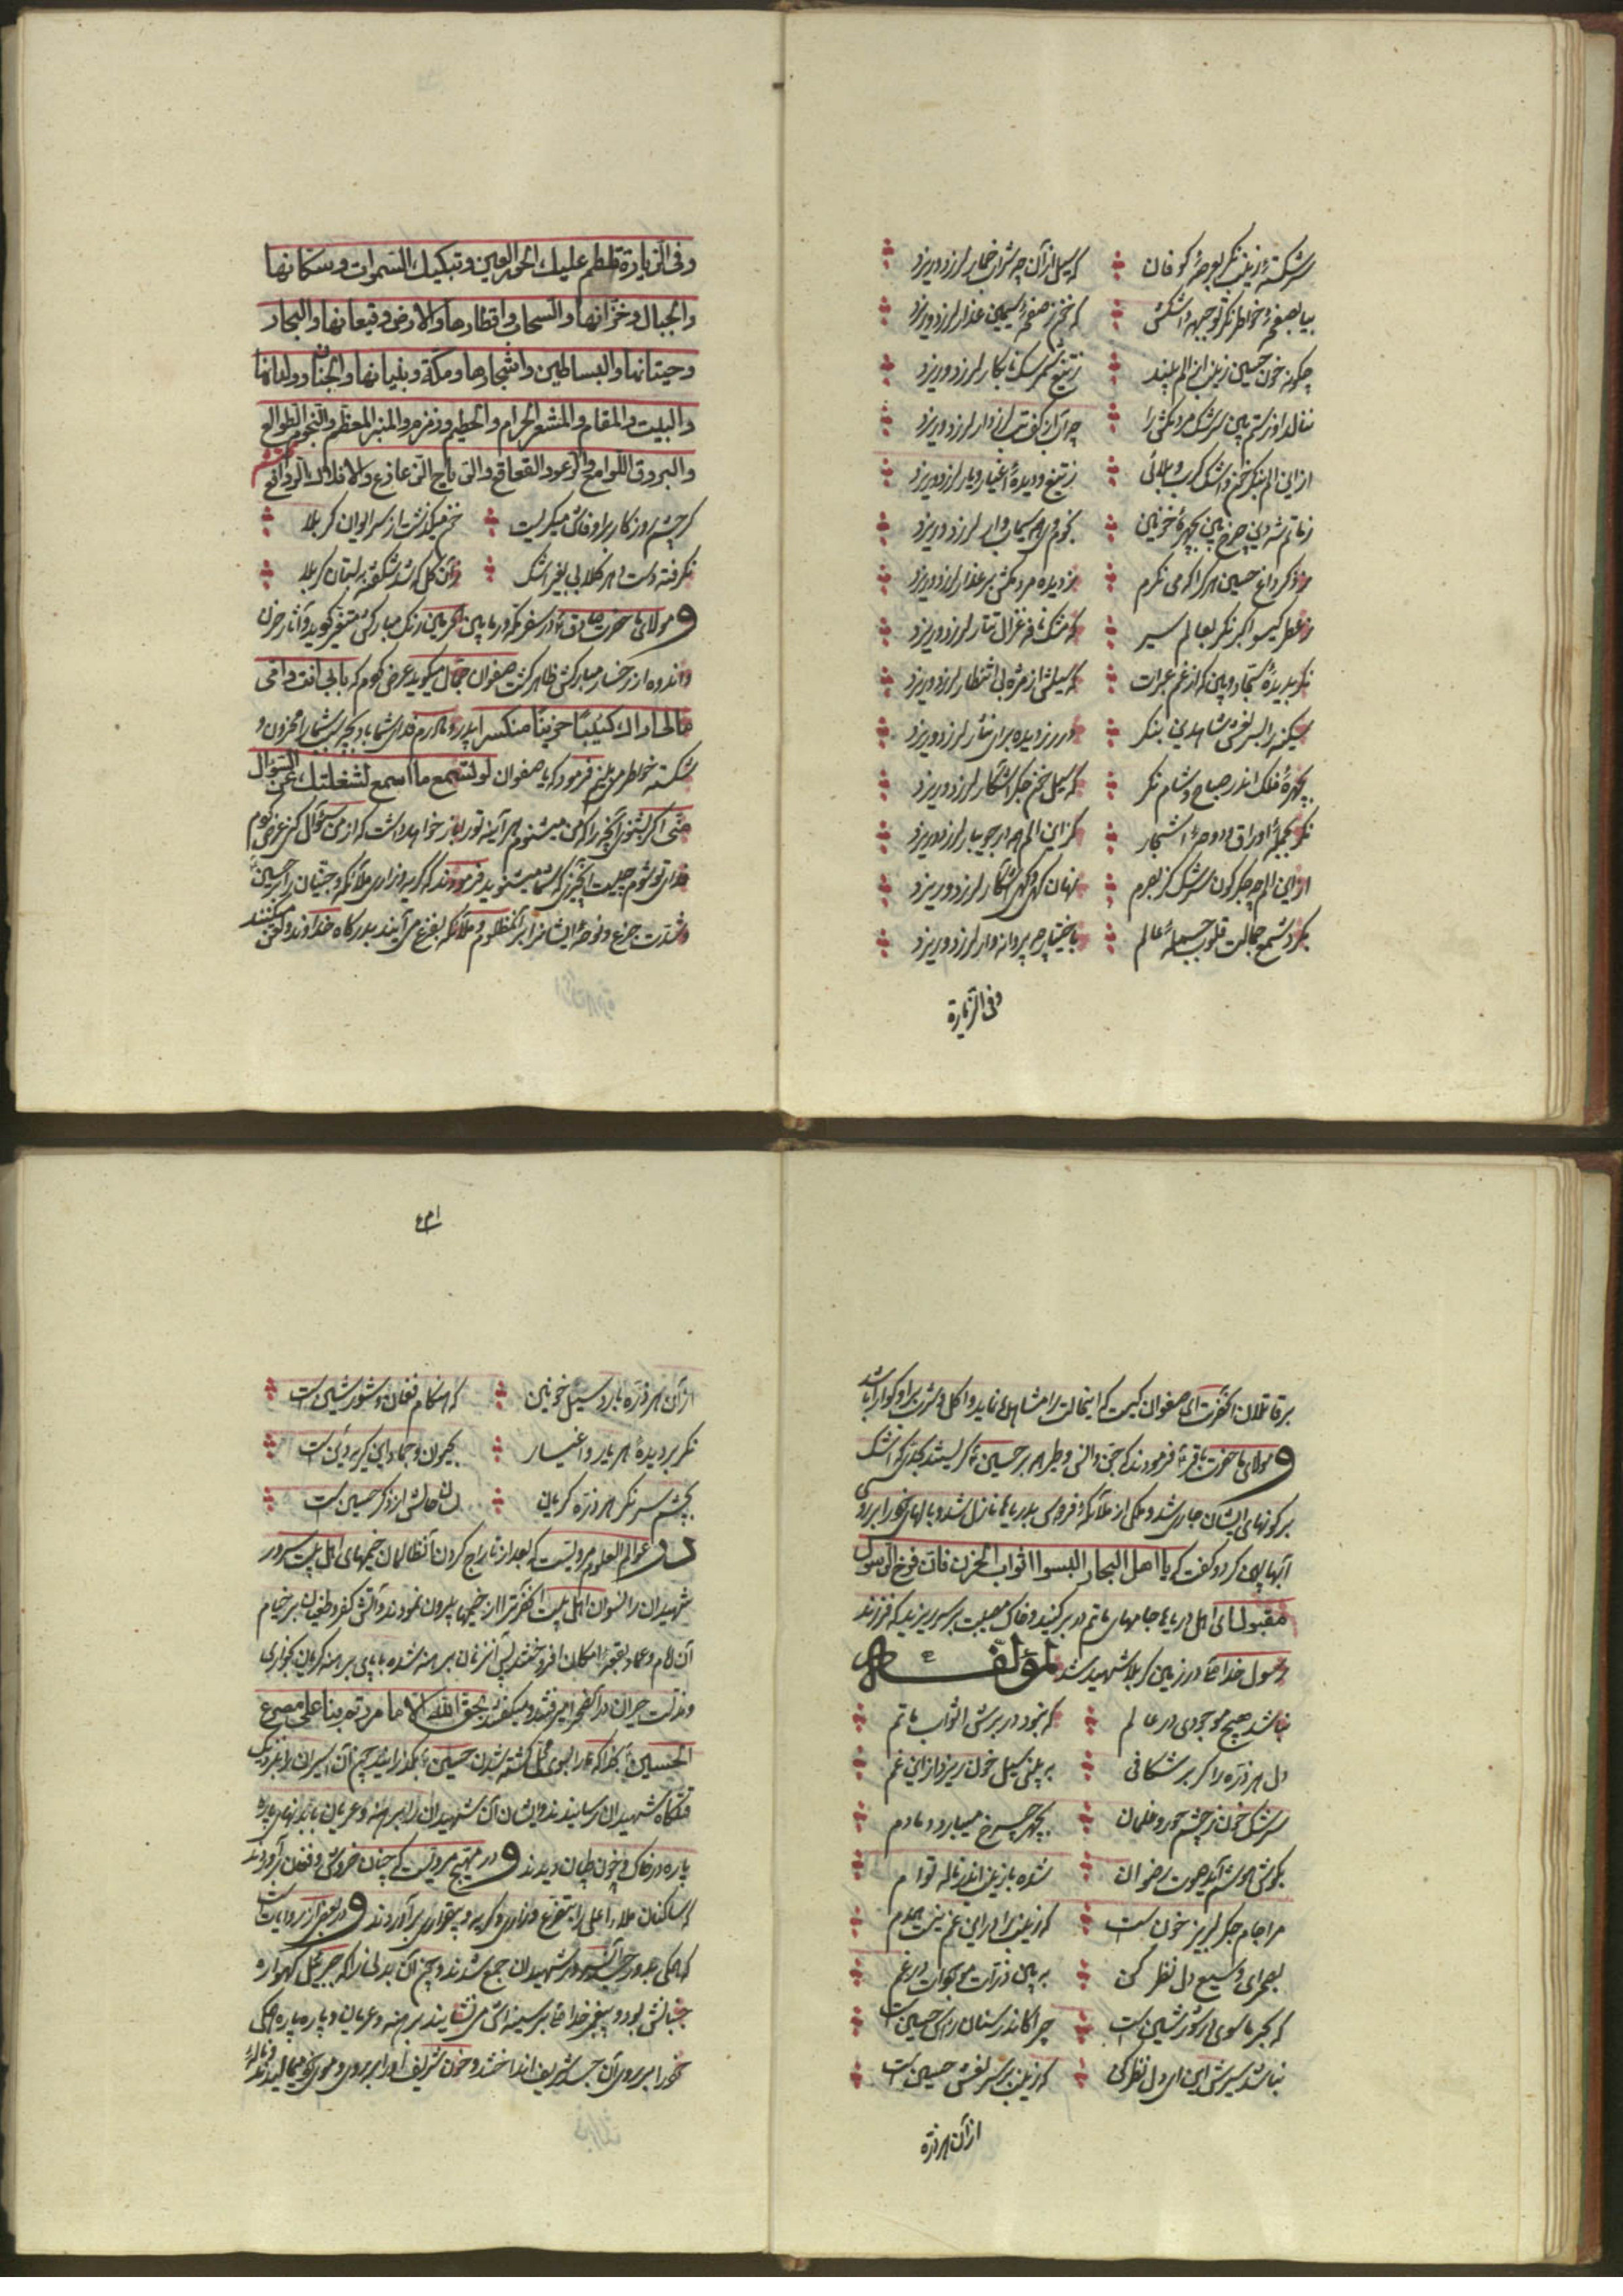 سرشک زینب نگر بعرصهٔ کوفان که سیل از آن چه شرار خمار لرزد و ریزد
بیا بصفحهٔ خواطر نگر تو چهره اشکش که خم ز صفحهٔ سیمین عذار لرزد و ریزد
چگونه خون حسین زینب از الم بیند ز تیغ شمر نابکار لرزد و ریزد
لرزد و ریزد
ازین الم بنگر خون و اشک کرب و بلائی ز تیغ و دیدهٔ اغیار و یار لرزد و ریزد
ز ماتم شه دین چرخ بین بچهرهٔ خونین سیماب وار لرزد و ریزد
ز ذکر داغ حسین هر کرا که می نگرم ز دیده مردمکش بر عذار لرزد و ریزد
ز عطر گیسو اکبر نگر بعالم سیر که مشک نافه غزال تتار لرزد و ریزد
نگر بدیدهٔ سجاد و بین که از غم عبرات که سیلش از مژه بی انتظار لرزد و ریزد
سکینه را بسر نعش شاه دین بنگر در ز دیده برای نثار لرزد و ریزد
بچهرهٔ فلک اندر صباح و شام نگر که سیل خم جگر آشکار لرزد و ریزد
نگر بجملهٔ اوراق دوحهٔ اشجار کزین الم همه در جویبار لرزد و ریزد
ازین الم چه جگرگون سرشک نهان گهی و گهی آشکار لرزد و ریزد
بگرد شمع جمالت قلوب جملهٔ عالم باختیار چه پروانه وار لرزد و ریزد
وفی الزیارة
وفی الزیارة تلطم علیک الحور العین وتبکیک السموات وسکانها
والجبال وخزانها والسحاب واقطارها والارض وقیعانها والبحار
وحیتانها والبساطین واشجارها ومکة وبنیانها والجنان وولدانها
والبیت والمقام والمشعر الحرام والحطیم وزمزم والمنبر المعظم والنجوم الطوالع
والبروق اللوامع والرعود القعاقع والریاح الزعازع والافلاک الروافع
گر چشم روزگار بر او فاش میگریست خم میگذشت از سر ایوان کربلا
نگرفته دست دهر گلابی بغیر اشک زان گل که شد شکفته ببستان کربلا
و مولای ما حضرت صادق ع در سفر مکه در مابین حرمین رنگ مبارکش متغیر گردید و آثار حزن
و اندوه از رخسار مبارکش ظاهر گشت صفوان جمال میگوید عرض کردم که بابی انت وامی
مالی اراک کئیبا حزینا منکسرا پدر و مادرم فدای شما باد بچه سبب شما را محزون و
شکسته خواطر میبینم فرمود که یا صفوان لو تسمع ما اسمع لشغلتک عن السؤال
منی اگر بشنوی آنچه را که من میشنوم هر آینه ترا باز خواهد داشت که از من سؤال کنی عرض کردم
فدای تو شوم چیست آنچیزی که شما میشنوید فرمودند که گریه و زاری ملائکه و جنیان را بر حسین ع
و شدت جزع و نوحهٔ ایشانرا بر آنمظلوم و ملائکه بفزع می آیند بدرگاه خداوند و لعن میکنند
بر قاتلان آنحضرت ای صفوان کیست که اینحالت را مشاهده نماید و اکل و شرب بر او گوارا باشد
و مولای ما حضرت باقر ع فرمودند که جن و انس و طیر همه بر حسین ع گریستند بحدی که اشک
بر گونهای ایشان جاری شد و ملکی از ملائکهٔ فردوس بدریاها نازل شد و بالهای خود را بر روی
آبها پهن کرد و گفت که یا اهل البحار البسوا اثواب الحزن فان فرخ الرسول
مقتول ای اهل دریاها جامهای ماتم در بر کنید و خاک مصیبت بر سر بریزید که فرزند
رسول خدا در زمین کربلا شهید شد لمؤلفه
نباشد هیچ موجودی در عالم که نبود در برش اثواب ماتم
دل هر ذره را گر بر شکافی به بینی سیل خون ریزد از این غم
سرشک خون ز چشم حور و غلمان بچهر چرخ میبارد دمادم
بگوش هوشم آید صوت رضوان شده با زینب اندر ناله توام
مرا جام جگر لبریز خون است که زینب را در این غم نیست همدم
بصحرای وسیع دل نظر کن به بین ذرات موجودات در غم
که بحر ماسوی در شور و شین است چرا کاندر سنان راس حسین است
نباشد سیرش این ای دل نظر کن که زینب بر سر نعش حسین است
از آن هر ذره
۴۰۱
از آن هر ذره بارد سیل خونین که هنگام فغان و شور و شین است
نگر بر دیدهٔ هر یار و اغیار بجیحون و جمادین گریه دین است
بچشم سر نگر هر ذره گریان لسان حالش از ذکر حسین است
در عوالم العلوم مرویست که بعد از تاراج کردن آنظالمان خیمهای اهل بیت سرور
شهیدان را نسوان اهل بیت آنحضرترا از خیمها بیرون نمودند و آتش کفر و طغیان بر خیام
آن امام امکان افروختند پس آنزنان برهنه شده با پای برهنه گریان بخواری
و ذلت حیران در آنصحرا میرفتند و میگفتند بحق الله الا ما مررتم بنا علی مصرع
الحسین ع بخدا که ما را بسوی محل کشته شدن حسین ع بگذرانید چون آن اسیران را بنزدیک
قتلگاه شهیدان رسانیدند و ایشان آن شهیدان را برهنه و عریان با بدنهای پاره
پاره در خاک و خون طپان دیدند و در مهیج مرویست که چنان خروش و فغان برآوردند
که ساکنان ملاء اعلی را بتضرع و زاری و گریه و بیقراری برآوردند و در بعضی از روایات
که همگی بدور جسد سرور شهیدان جمع شدند و چون آن بدنی را که جبرئیل گهواره
جنبانش بود و پیغمبر خدا بر سینه اش می نشانید برهنه و عریان و پاره پاره همگی
خود را بر روی آن جسد شریف انداختند و خون شریف او را بر روی و موی خود میمالیدند و ناله